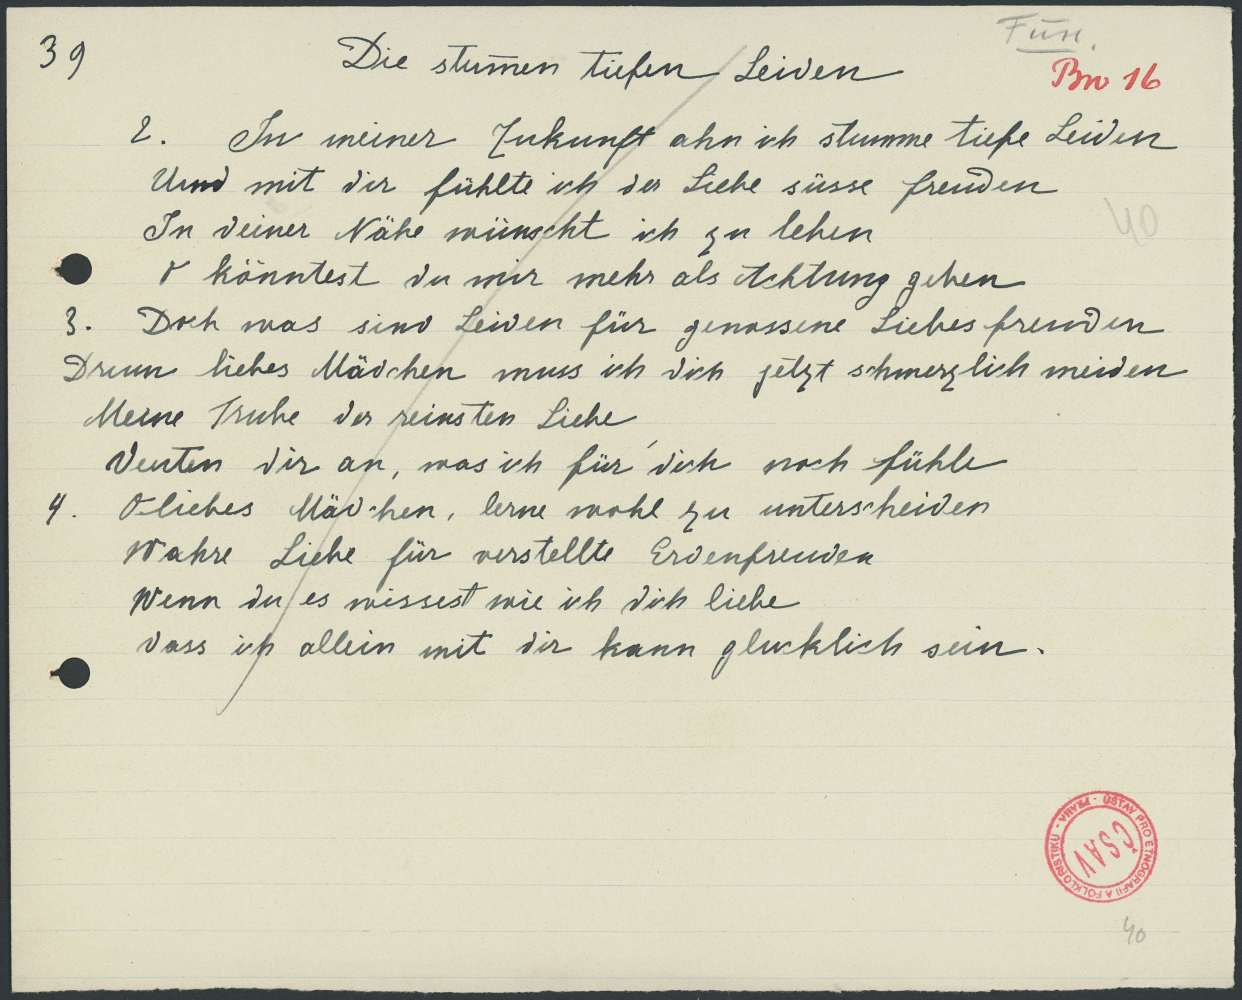 39
Die stum̄en tiefen Leiden
Fün.
Bw 16
2. In meiner Zukunft ahn ich stumme tiefe Leiden
Und mit dir fühlte ich der Liebe süsse freuden
In deiner Nähe wünscht ich zu leben
40
O könntest du mir mehr als Achtung geben
3. Doch was sind Leiden für genossene Liebesfreuden
Drum liebes Mädchen muss ich dich jetzt schmerzlich meiden
Meine der reinsten Liebe
Deuten dir an, was ich für dich noch fühle
4. O liebes Mädchen, lerne wohl zu unterscheiden
Wahre Liebe für verstellte Erdenfreuden
Wenn du es wissest wie ich dich liebe
dass ich allein mit dir kann glucklich sein.
ÚSTAV PRO ETNOGRAFII A FOLKLORISTIKU - PRAHA -
ČSAV
40